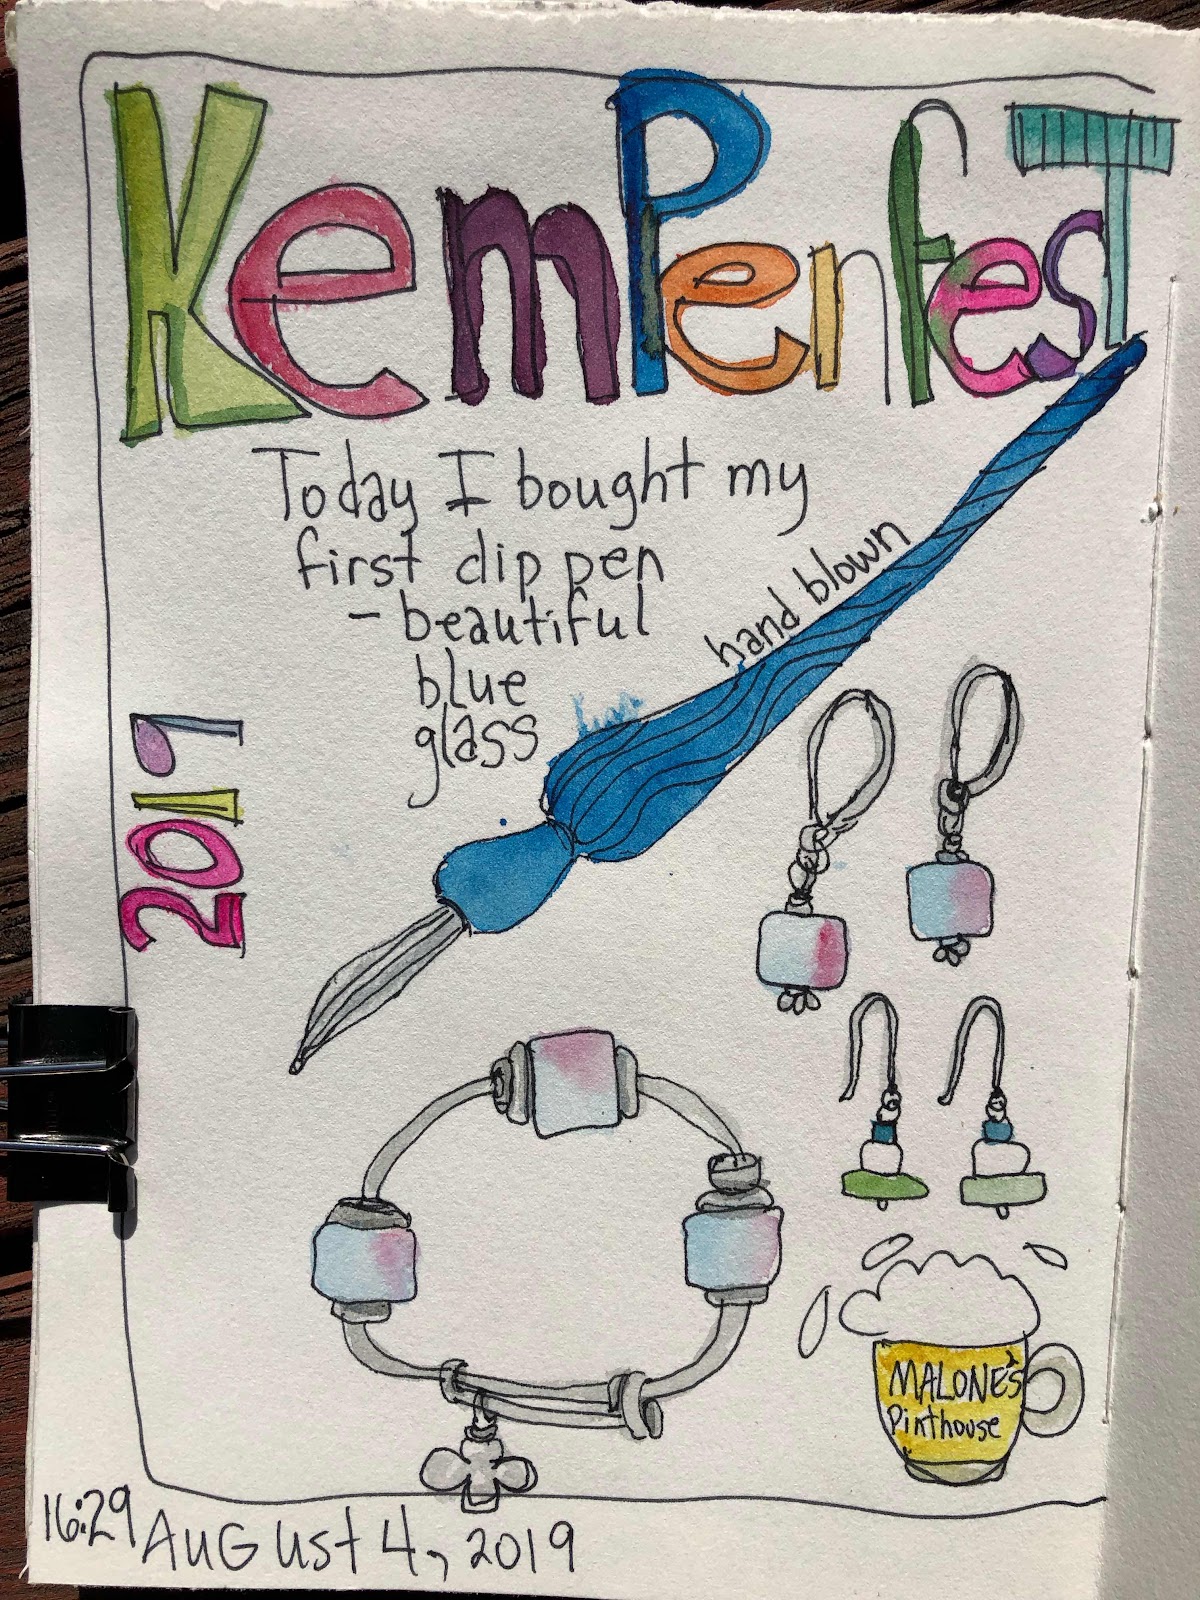 KemPenfesT
Today I bought my
first dip pen
- beautiful
blue
glass
hand blown
2019
MALONE'S
Pinthouse
16:29 AuGust 4, 2019